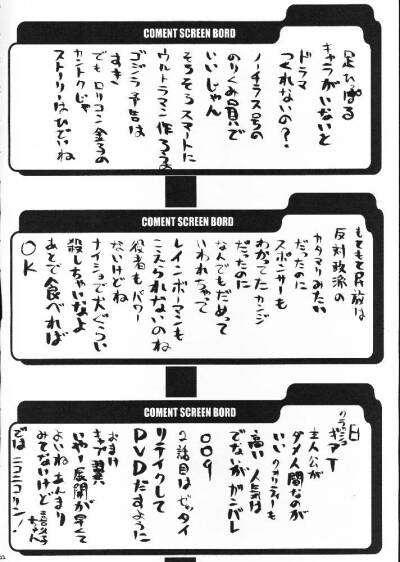 COMENT SCREEN BORD
足ひっぱる
キャラがいないと
ドラマ
つくれないの?
ノーチラス号の
のりくみ員で
いいじゃん
そろそろスマートに
ウルトラマン作ろうよ
ゴジラ予告は
すき
でもロリコン金子の
カントクじゃ
ストーリーはひどいね
COMENT SCREEN BORD
もともと民放は
反対政派の
カタマリみたい
だったのに
スポンサーも
わかってたカンジ
だったのに
なんでもだめって
いわれちゃって
レインボーマンも
こえられないのね
役者もパワー
ないけどね
ナイショで犬ぐらい
殺しちゃいなよ
あとで食べれば
OK
COMENT SCREEN BORD
クラッシュ
ギア T
主人公が
ダメ人間なのが
いい クオリティーも
高い 人気は
でないが ガンバレ
009
2話目はゼッタイ
リテイクして
DVDだすように
おまけ
キャプ翼
いや 展開が早くて
よいね あんまり
みてないけど
ちゃん
ではニコニコリン!